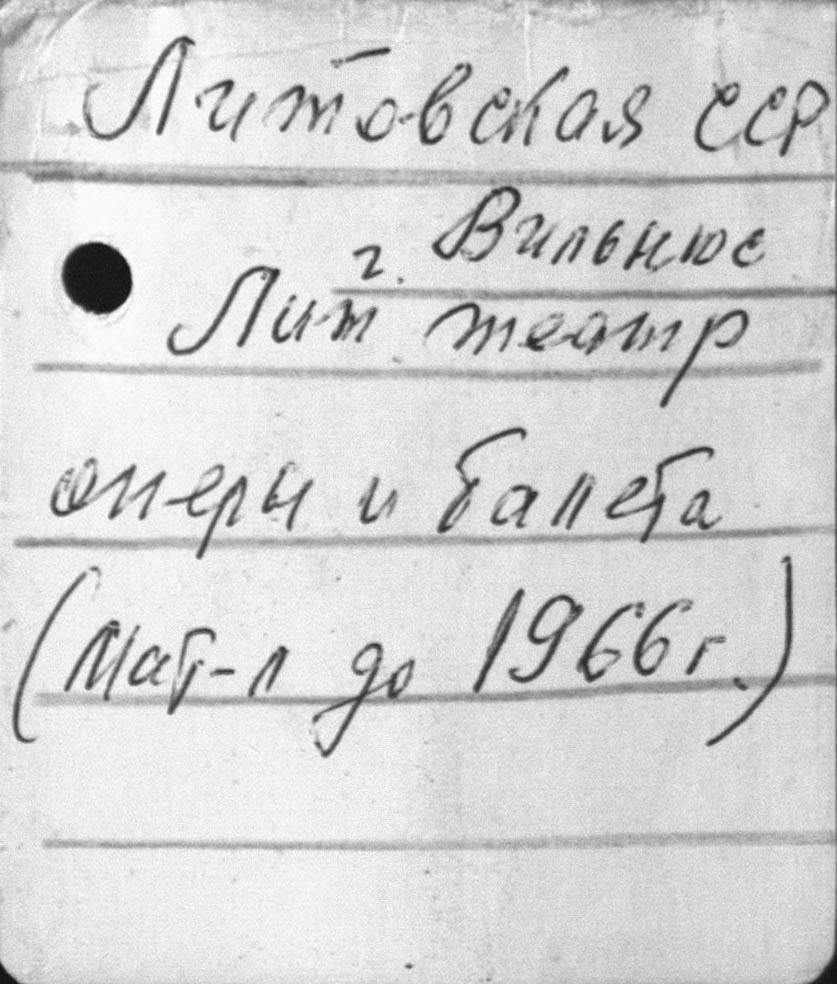 Литовская ССР
г. Вильнюс
Лит. театр
оперы и балета
(мат-л до 1966 г.)